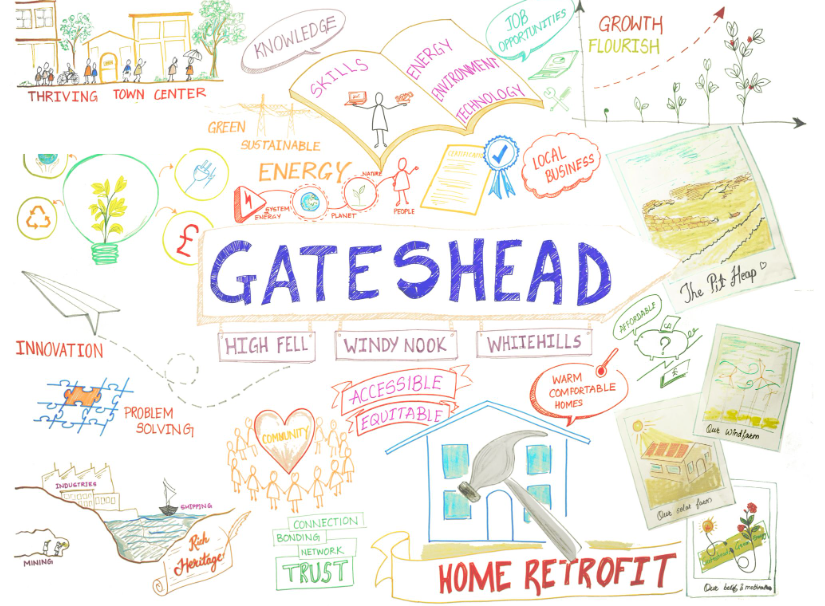 THRIVING TOWN CENTER
KNOWLEDGE
SKILLS
ENERGY
ENVIRONMENT
TECHNOLOGY
JOB
OPPORTUNITIES
GROWTH
FLOURISH
GREEN
SUSTAINABLE
ENERGY
SYSTEM
ENERGY
PLANET
NATURE
PEOPLE
LOCAL
BUSINESS
£
GATESHEAD
The Pit Heap
HIGH FELL
WINDY NOOK
WHITEHILLS
INNOVATION
PROBLEM
SOLVING
ACCESSIBLE
EQUITABLE
WARM
COMFORTABLE
HOMES
AFFORDABLE
?
Our Windfarm
COMMUNITY
Our solar farm
INDUSTRIES
SHIPPING
MINING
Rich
Heritage
CONNECTION
BONDING
NETWORK
TRUST
HOME RETROFIT